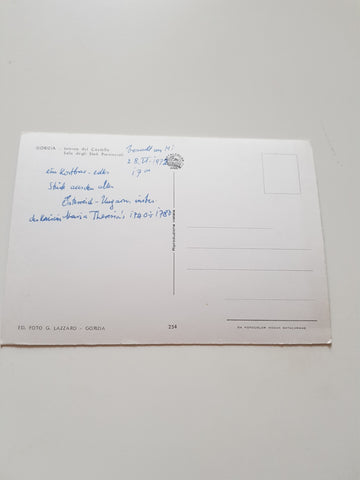 GORIZIA - Interno del Castello
Sala degli Stati Provinciali
Besucht am Mi
28.VI.1972
17 00
ein Kostbar-edles
Stück aus dem alten
Österreich-Ungarn unter
der Kaiserin Maria Theresia's 1740-1780
Riproduzione vietata
ED. FOTO G. LAZZARO - GORIZIA
254